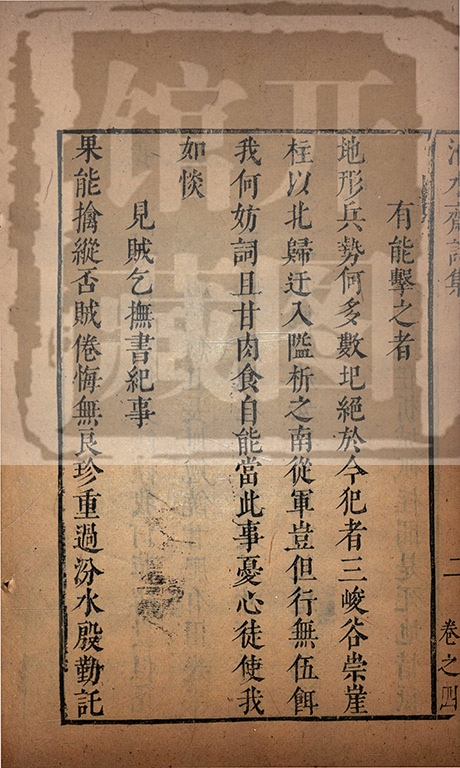 有能擊之者
地形兵勢何多數圯絕於今犯者三峻谷崇崖
枉以北歸迂入隘析之南從軍豈但行無伍餌
我何妨詞且甘肉食自能當此事憂心徒使我
如惔
見賊乞撫書紀事
果能擒縱否賊倦悔無良珍重過汾水殷勤託
二
卷之四